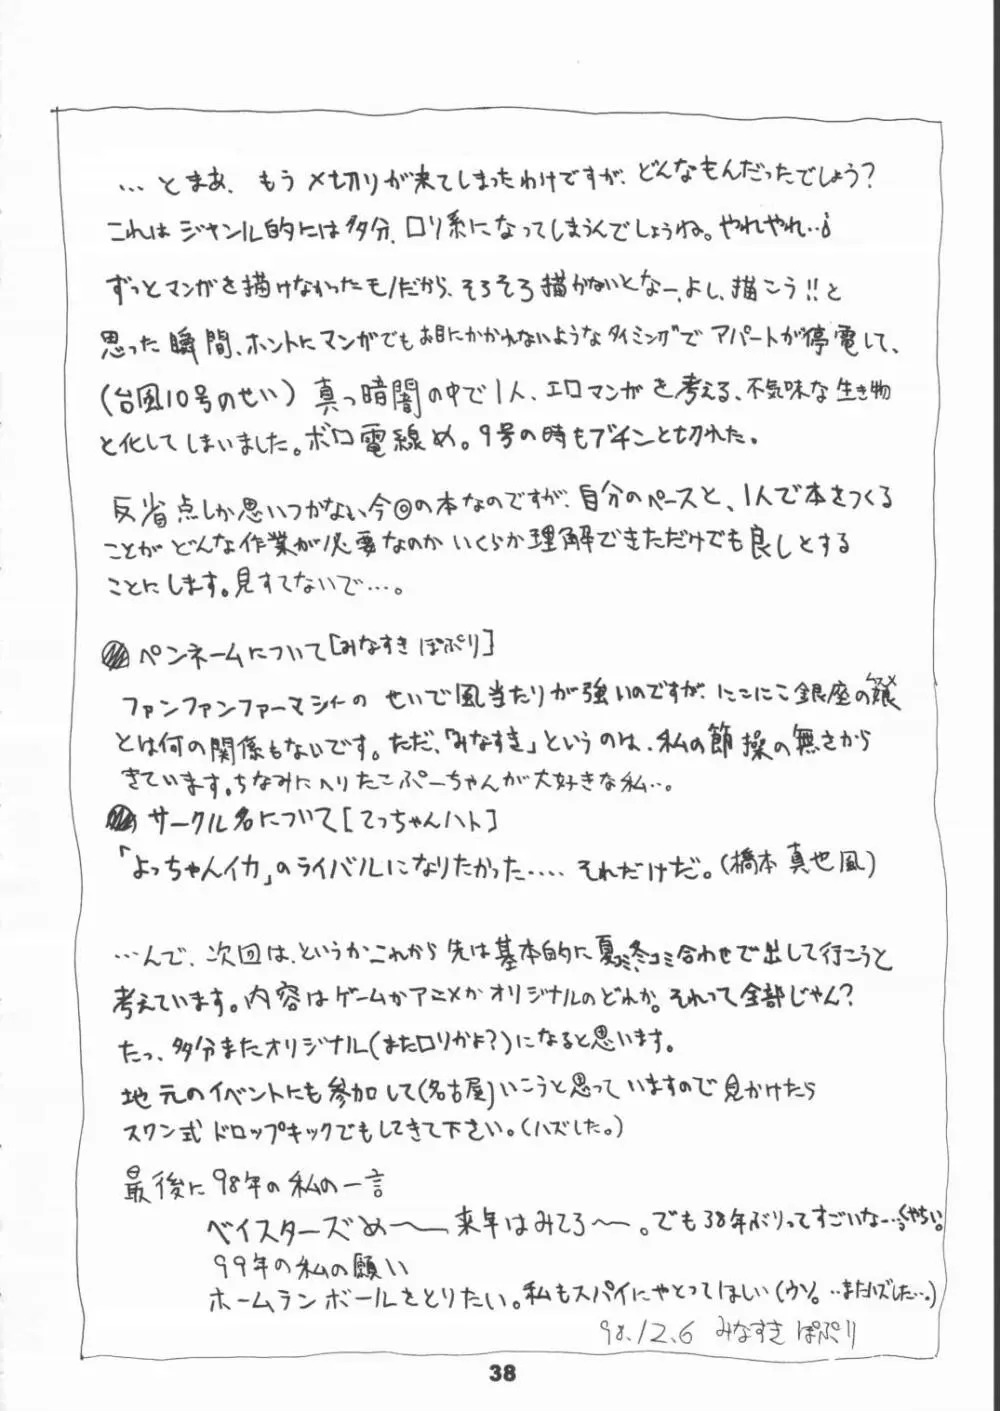 …とまあ、もう〆切りが来てしまったわけですが、どんなもんだったでしょう?
これはジャンル的には多分、ロリ系になってしまうんでしょうね。やれやれ…
ずっとマンガを描けなかったモノだから、そろそろ描かないとなー、よし、描こう!!と
思った瞬間、ホントにマンガでもお目にかかれないようなタイミングでアパートが停電して、
(台風10号のせい) 真っ暗闇の中で1人、エロマンガを考える、不気味な生き物
と化してしまいました。ボロ電線め。9号の時もブチンと切れた。
反省点しか思いつかない今回の本なのですが、自分のペースと、1人で本をつくる
ことがどんな作業が必要なのかいくらか理解できただけでも良しとする
ことにします。見すてないで…。
ペンネームについて[みなすき ぽぷり]
ファンファンファーマシィーのせいで風当たりが強いのですが、にこにこ銀座の娘ムスメ
とは何の関係もないです。ただ、「みなすき」というのは、私の節操の無さから
きています。ちなみにへりたこぷーちゃんが大好きな私…。
サークル名について[てっちゃんハト]
「よっちゃんイカ」のライバルになりたかった….. それだけだ。(橋本真也風)
…んで、次回は、というかこれから先は基本的に夏コミ、冬コミ合わせで出して行こうと
考えています。内容はゲームかアニメかオリジナルのどれか。それって全部じゃん?
たっ、多分またオリジナル(またロリかよ?)になると思います。
地元のイベントにも参加して(名古屋)いこうと思っていますので見かけたら
スワン式ドロップキックでもしてきて下さい。(ハズした。)
最後に98年の私の一言
ベイスターズめ〜〜来年はみてろ〜。でも38年ぶりってすごいなー…くやちい。
99年の私の願い
ホームランボールをとりたい。私もスパイにやとってほしい(ウソ。…またハズした…。)
98.12.6 みなすき ぽぷり
38